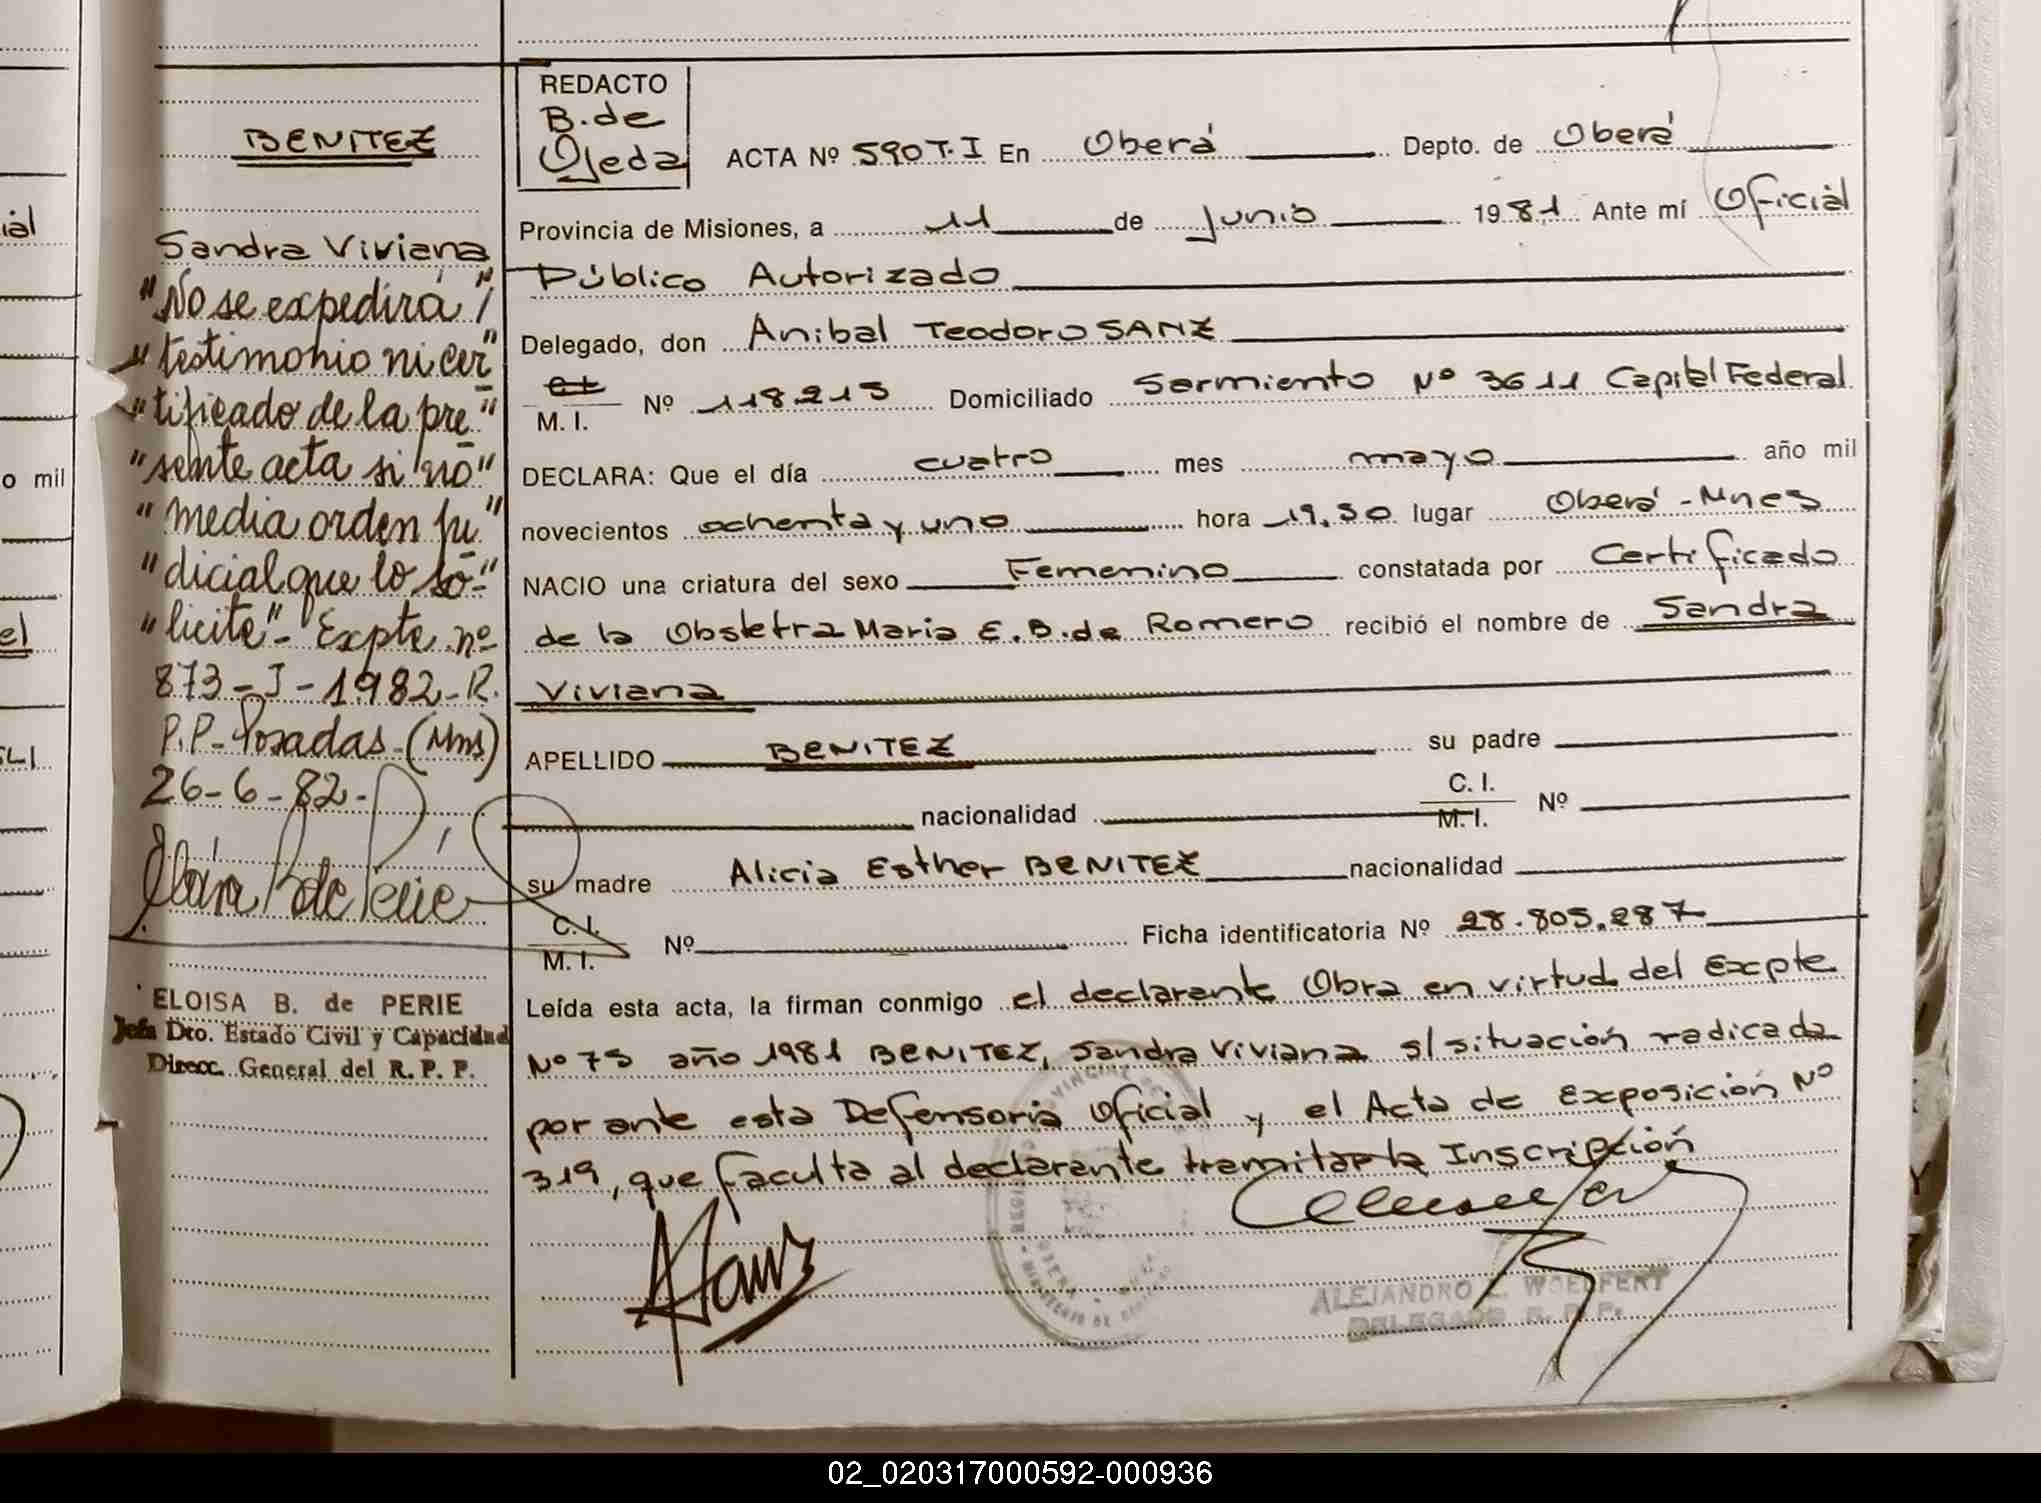 ial
o mil
el
BENITEZ
Sandra Viviana
"No se expedirá"
"testimonio ni cer"
"tificado de la pre-"
"sente acta si no"
"media orden ju-"
"dicial que lo so-"
"licite"- Expte. nº
873-I-1982-R.
P.P- Posadas-(Mns)
26-6-82-
ELOISA B. de PERIE
Jefa Dto. Estado Civil y Capacidad
Direcc. General del R. P. P.
REDACTO
B. de
Ojeda
ACTA Nº 590 T. I En Oberá Depto. de Oberá
Provincia de Misiones, a 11 de Junio 1981 Ante mí Oficial
Público Autorizado
Delegado, don Anibal Teodoro SANZ
M. I. Nº 118215 Domiciliado Sarmiento Nº 3611 Capital Federal
DECLARA: Que el día cuatro mes mayo año mil
novecientos ochenta y uno hora 19,30 lugar Oberá - Mnes
NACIO una criatura del sexo Femenino constatada por Certificado
de la Obstetra Maria E. B. de Romero recibió el nombre de Sandra
Viviana
APELLIDO BENITEZ su padre
nacionalidad C. I. M. I. Nº
su madre Alicia Esther BENITEZ nacionalidad
C. I. M. I. Nº Ficha identificatoria Nº 28.805.287
Leída esta acta, la firman conmigo el declarante Obra en virtud del Excpte
Nº 75 año 1981 BENITEZ, Sandra Viviana s/situación radicada
por ante esta Defensoria Oficial y el Acta de Exposición Nº
319, que faculta al declarante tramitar la Inscripción
ASanz
ALEJANDRO E. WOELFERT
DELEGADO R. P. P.
02_020317000592-000936